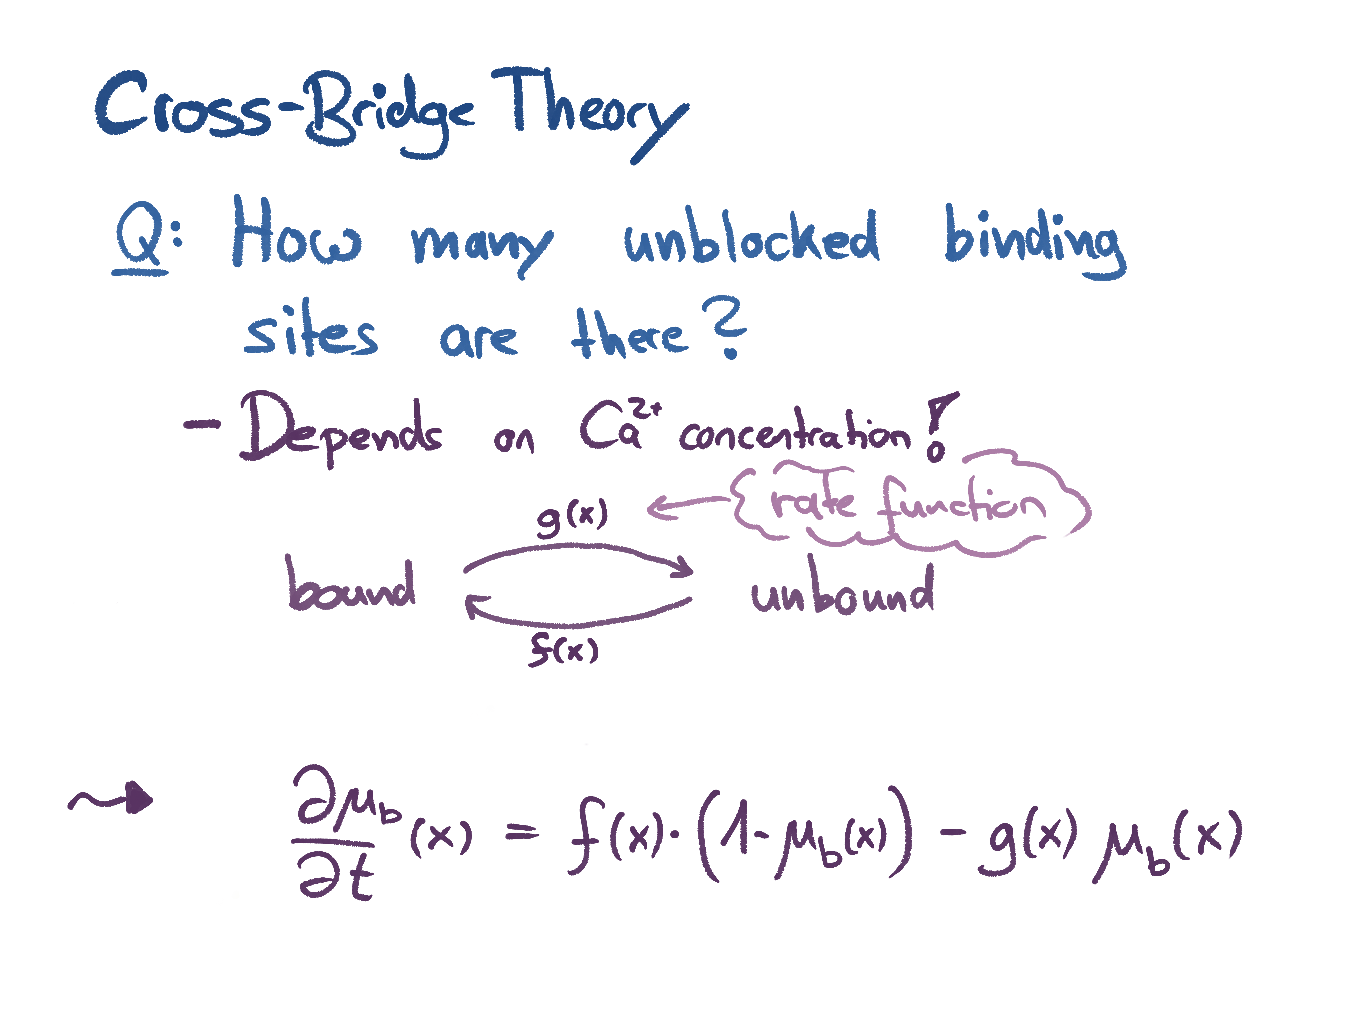 Cross-Bridge Theory
Q: How many unblocked binding
sites are there?
- Depends on Ca²⁺ concentration!
rate function
g(x)
bound unbound
f(x)
∂μ_b/∂t (x) = f(x)·(1-μ_b(x)) - g(x) μ_b(x)